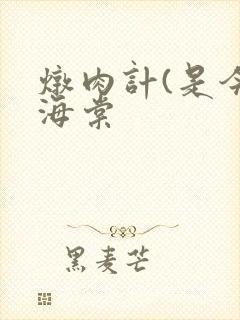 燉肉計(是今
海棠
黑麦芒